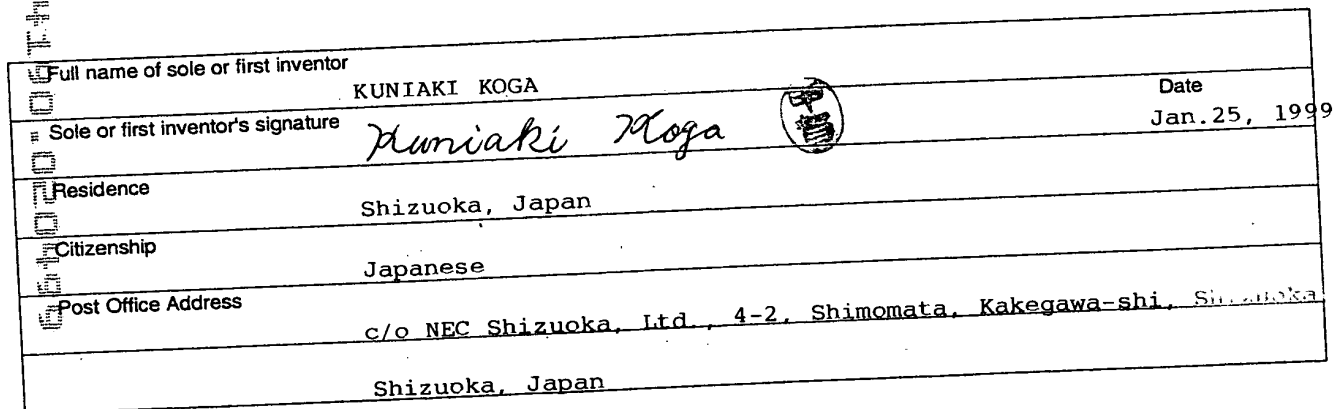 Full name of sole or first inventor
KUNIAKI KOGA
Sole or first inventor's signature
Kuniaki Koga
Date
Jan.25, 1999
Residence
Shizuoka, Japan
Citizenship
Japanese
Post Office Address
c/o NEC Shizuoka, Ltd., 4-2, Shimomata, Kakegawa-shi,
Shizuoka, Japan